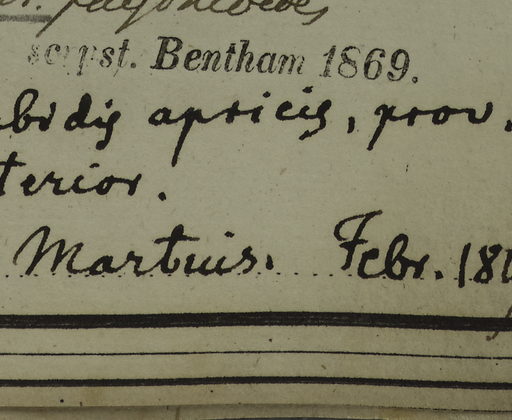 scrpst. Bentham 1869.
apricis, prov.
terior.
Martius. Febr. 18